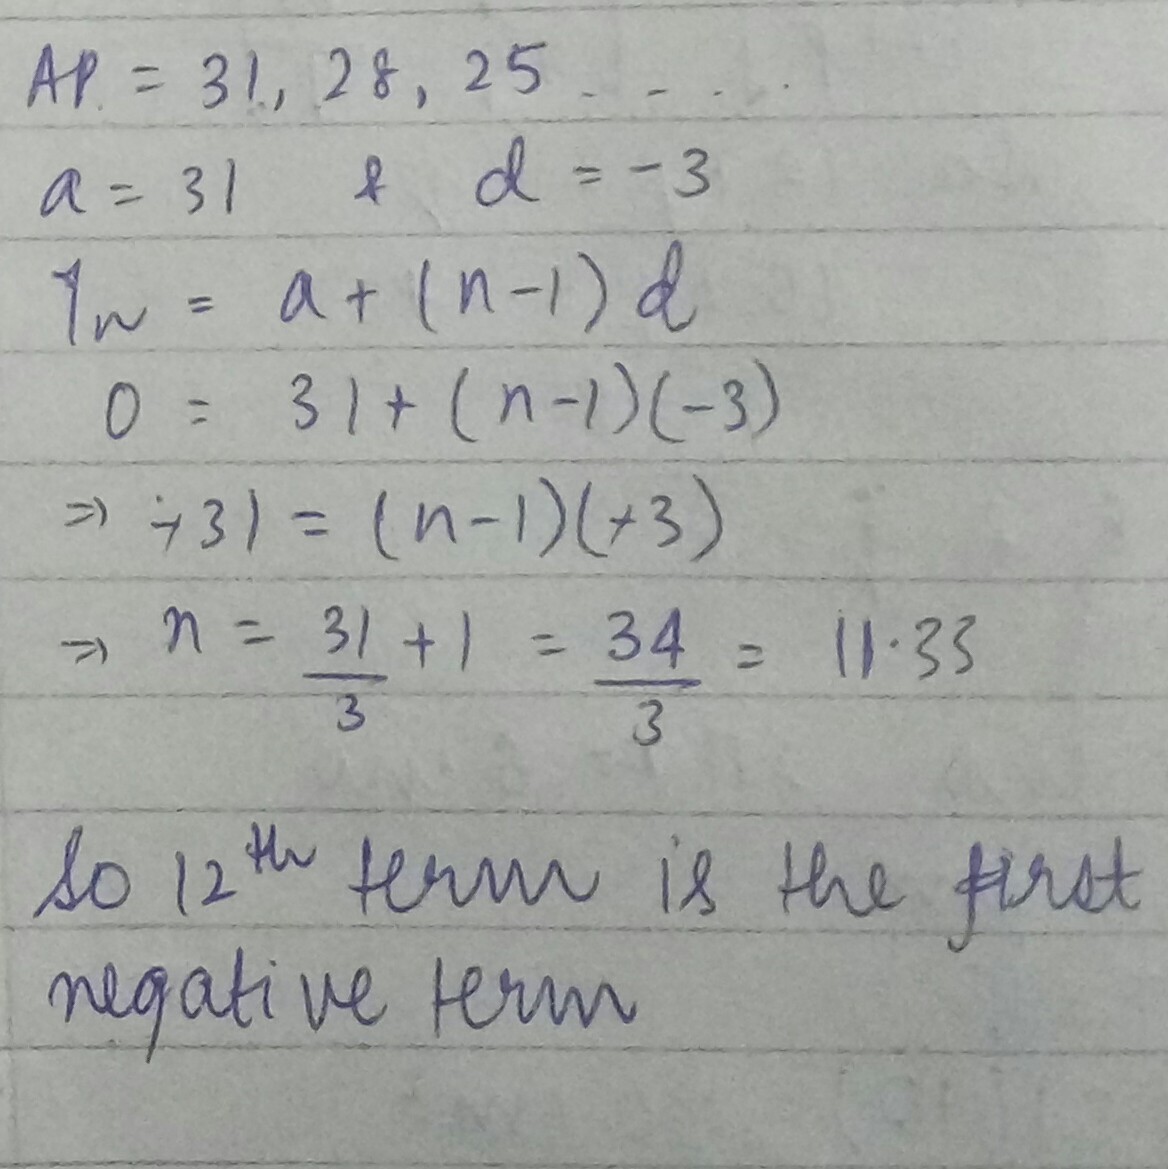 AP = 31, 28, 25 - - . . .
a = 31 & d = -3
Tn = a + (n-1) d
0 = 31 + (n-1)(-3)
⇒ +31 = (n-1)(+3)
⇒ n = 31/3 + 1 = 34/3 = 11.33
So 12th term is the first
negative term